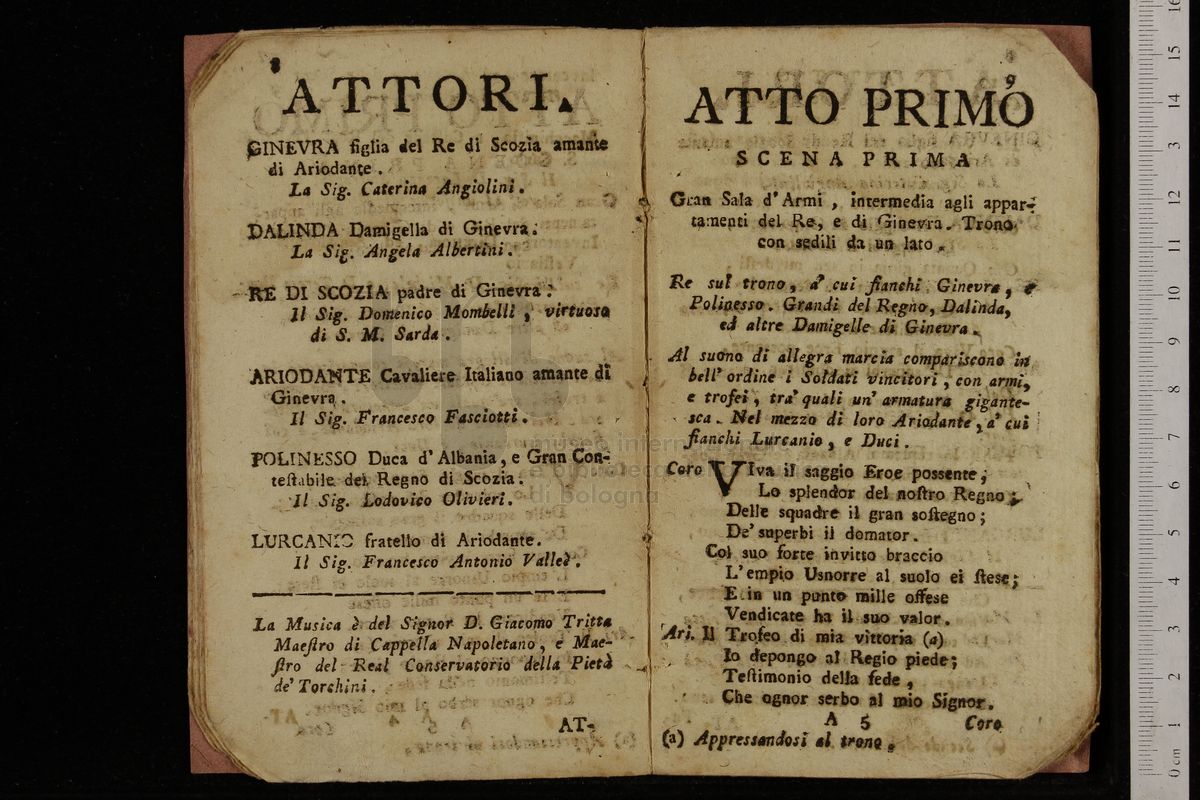 8
ATTORI.
GINEVRA figlia del Re di Scozia amante
di Ariodante.
La Sig. Caterina Angiolini.
DALINDA Damigella di Ginevra.
La Sig. Angela Albertini.
RE DI SCOZIA padre di Ginevra.
Il Sig. Domenico Mombelli, virtuoso
di S. M. Sarda.
ARIODANTE Cavaliere Italiano amante di
Ginevra.
Il Sig. Francesco Fasciotti.
POLINESSO Duca d' Albania, e Gran Con-
testabile del Regno di Scozia.
Il Sig. Lodovico Olivieri.
LURCANIO fratello di Ariodante.
Il Sig. Francesco Antonio Valleè.
La Musica è del Signor D. Giacomo Tritta
Maestro di Cappella Napoletano, e Mae-
stro del Real Conservatorio della Pietà
de' Torchini.
AT-
9
ATTO PRIMO
SCENA PRIMA
Gran Sala d' Armi, intermedia agli appar-
tamenti del Re, e di Ginevra. Trono
con sedili da un lato.
Re sul trono, a' cui fianchi Ginevra, e
Polinesso. Grandi del Regno, Dalinda,
ed altre Damigelle di Ginevra.
Al suono di allegra marcia compariscono in
bell' ordine i Soldati vincitori, con armi,
e trofei, tra' quali un' armatura gigante-
sca. Nel mezzo di loro Ariodante, a' cui
fianchi Lurcanio, e Duci.
Coro VIva il saggio Eroe possente;
Lo splendor del nostro Regno;
Delle squadre il gran sostegno;
De' superbi il domator.
Col suo forte invitto braccio
L' empio Usnorre al suolo ei stese;
E in un punto mille offese
Vendicate ha il suo valor.
Ari. Il Trofeo di mia vittoria (a)
Io depongo al Regio piede;
Testimonio della fede,
Che ognor serbo al mio Signor.
A 5 Coro
(a) Appressandosi al trono.
museo internazionale
e biblioteca
di bologna